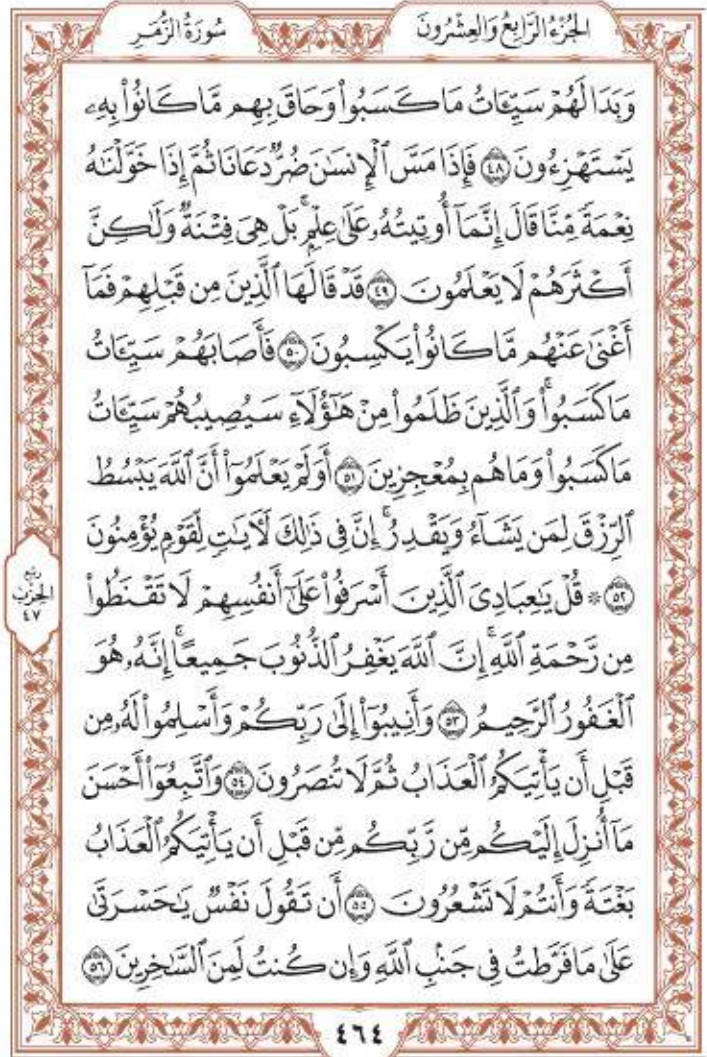 الجُزْءُ الرَّابِعُ وَالعِشْرُونَ
سُورَةُ الزُّمَرِ
وَبَدَا لَهُمْ سَيِّـَٔاتُ مَا كَسَبُوا۟ وَحَاقَ بِهِم مَّا كَانُوا۟ بِهِۦ
يَسْتَهْزِءُونَ ٤٨ فَإِذَا مَسَّ ٱلْإِنسَٰنَ ضُرٌّ دَعَانَا ثُمَّ إِذَا خَوَّلْنَٰهُ
نِعْمَةً مِّنَّا قَالَ إِنَّمَآ أُوتِيتُهُۥ عَلَىٰ عِلْمٍۭۚ بَلْ هِىَ فِتْنَةٌ وَلَٰكِنَّ
أَكْثَرَهُمْ لَا يَعْلَمُونَ ٤٩ قَدْ قَالَهَا ٱلَّذِينَ مِن قَبْلِهِمْ فَمَآ
أَغْنَىٰ عَنْهُم مَّا كَانُوا۟ يَكْسِبُونَ ٥٠ فَأَصَابَهُمْ سَيِّـَٔاتُ
مَا كَسَبُوا۟ۚ وَٱلَّذِينَ ظَلَمُوا۟ مِنْ هَٰٓؤُلَآءِ سَيُصِيبُهُمْ سَيِّـَٔاتُ
مَا كَسَبُوا۟ وَمَا هُم بِمُعْجِزِينَ ٥١ أَوَلَمْ يَعْلَمُوٓا۟ أَنَّ ٱللَّهَ يَبْسُطُ
ٱلرِّزْقَ لِمَن يَشَآءُ وَيَقْدِرُۚ إِنَّ فِى ذَٰلِكَ لَءَايَٰتٍ لِّقَوْمٍ يُؤْمِنُونَ
٥٢ ۞ قُلْ يَٰعِبَادِىَ ٱلَّذِينَ أَسْرَفُوا۟ عَلَىٰٓ أَنفُسِهِمْ لَا تَقْنَطُوا۟
مِن رَّحْمَةِ ٱللَّهِۚ إِنَّ ٱللَّهَ يَغْفِرُ ٱلذُّنُوبَ جَمِيعًاۚ إِنَّهُۥ هُوَ
ٱلْغَفُورُ ٱلرَّحِيمُ ٥٣ وَأَنِيبُوٓا۟ إِلَىٰ رَبِّكُمْ وَأَسْلِمُوا۟ لَهُۥ مِن
قَبْلِ أَن يَأْتِيَكُمُ ٱلْعَذَابُ ثُمَّ لَا تُنصَرُونَ ٥٤ وَٱتَّبِعُوٓا۟ أَحْسَنَ
مَآ أُنزِلَ إِلَيْكُم مِّن رَّبِّكُم مِّن قَبْلِ أَن يَأْتِيَكُمُ ٱلْعَذَابُ
بَغْتَةً وَأَنتُمْ لَا تَشْعُرُونَ ٥٥ أَن تَقُولَ نَفْسٌ يَٰحَسْرَتَىٰ
عَلَىٰ مَا فَرَّطتُ فِى جَنۢبِ ٱللَّهِ وَإِن كُنتُ لَمِنَ ٱلسَّٰخِرِينَ ٥٦
رُبْعُ
الحِزْبِ
٤٧
٤٦٤